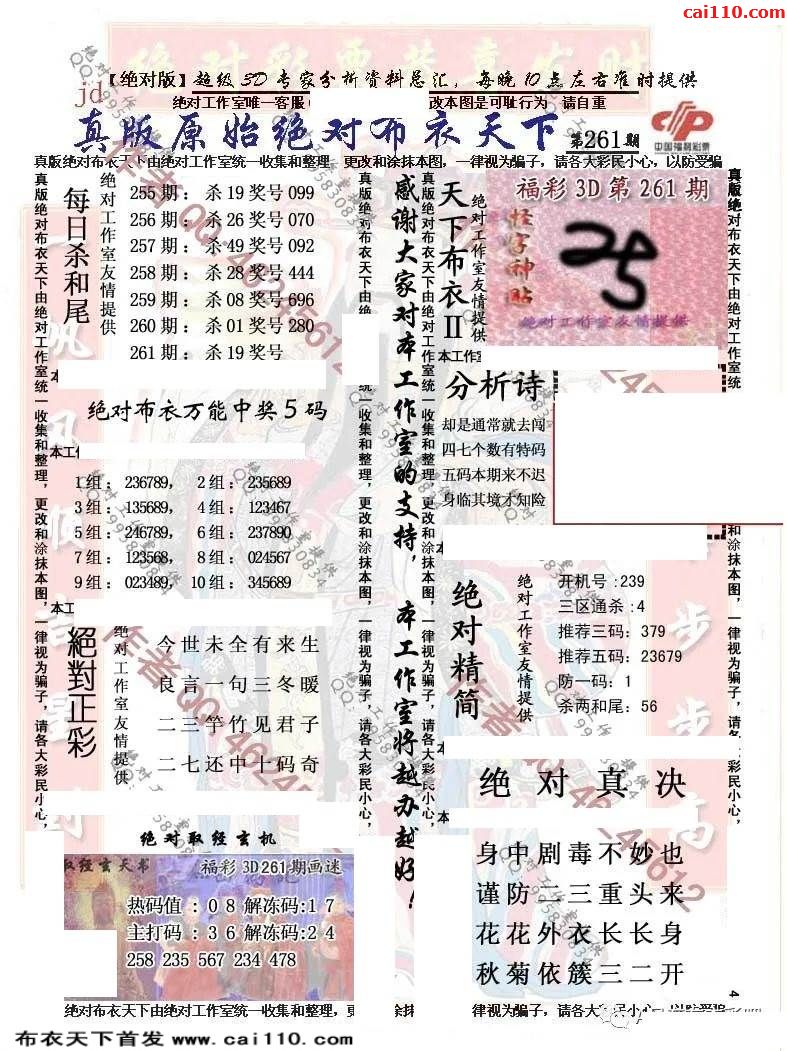 cai110.com
【绝对版】超级3D专家分析资料总汇，每晚10点左右准时提供
jd
绝对工作室唯一客服
改本图是可耻行为 请自重
真版原始绝对布衣天下
第261期
中国福利彩票
真版绝对布衣天下由绝对工作室统一收集和整理，更改和涂抹本图，一律视为骗子，请各大彩民小心，以防受骗
每日杀和尾
绝对工作室友情提供
255期：杀19奖号099
256期：杀26奖号070
257期：杀49奖号092
258期：杀28奖号444
259期：杀08奖号696
260期：杀01奖号280
261期：杀19奖号
绝对布衣万能中奖5码
1组：236789， 2组：235689
3组：135689， 4组：123467
5组：246789， 6组：237890
7组：123568， 8组：024567
9组：023489， 10组：345689
絕對正彩
绝对工作室友情提供
今世未全有来生
良言一句三冬暖
二三竿竹见君子
二七还中十码奇
绝对取经玄机
取经玄天书
福彩3D261期画迷
热码值：08解冻码:17
主打码：36解冻码:24
258 235 567 234 478
感谢大家对本工作室的支持，本工作室将越办越好！
天下布衣II
绝对工作室友情提供
福彩3D第261期
怪字神贴
25
绝对工作室友情提供
分析诗
却是通常就去闯
四七个数有特码
五码本期来不迟
身临其境才知险
绝对精简
绝对工作室友情提供
开机号:239
三区通杀:4
推荐三码:379
推荐五码:23679
防一码:1
杀两和尾:56
绝对真决
身中剧毒不妙也
谨防二三重头来
花花外衣长长身
秋菊依簇三二开
真版绝对布衣天下由绝对工作室统一收集和整理，更改和涂抹本图，一律视为骗子，请各大彩民小心，
绝对布衣天下由绝对工作室统一收集和整理，更
涂抹
律视为骗子，请各大彩民小心，以防受骗
布衣天下首发 www.cai110.com